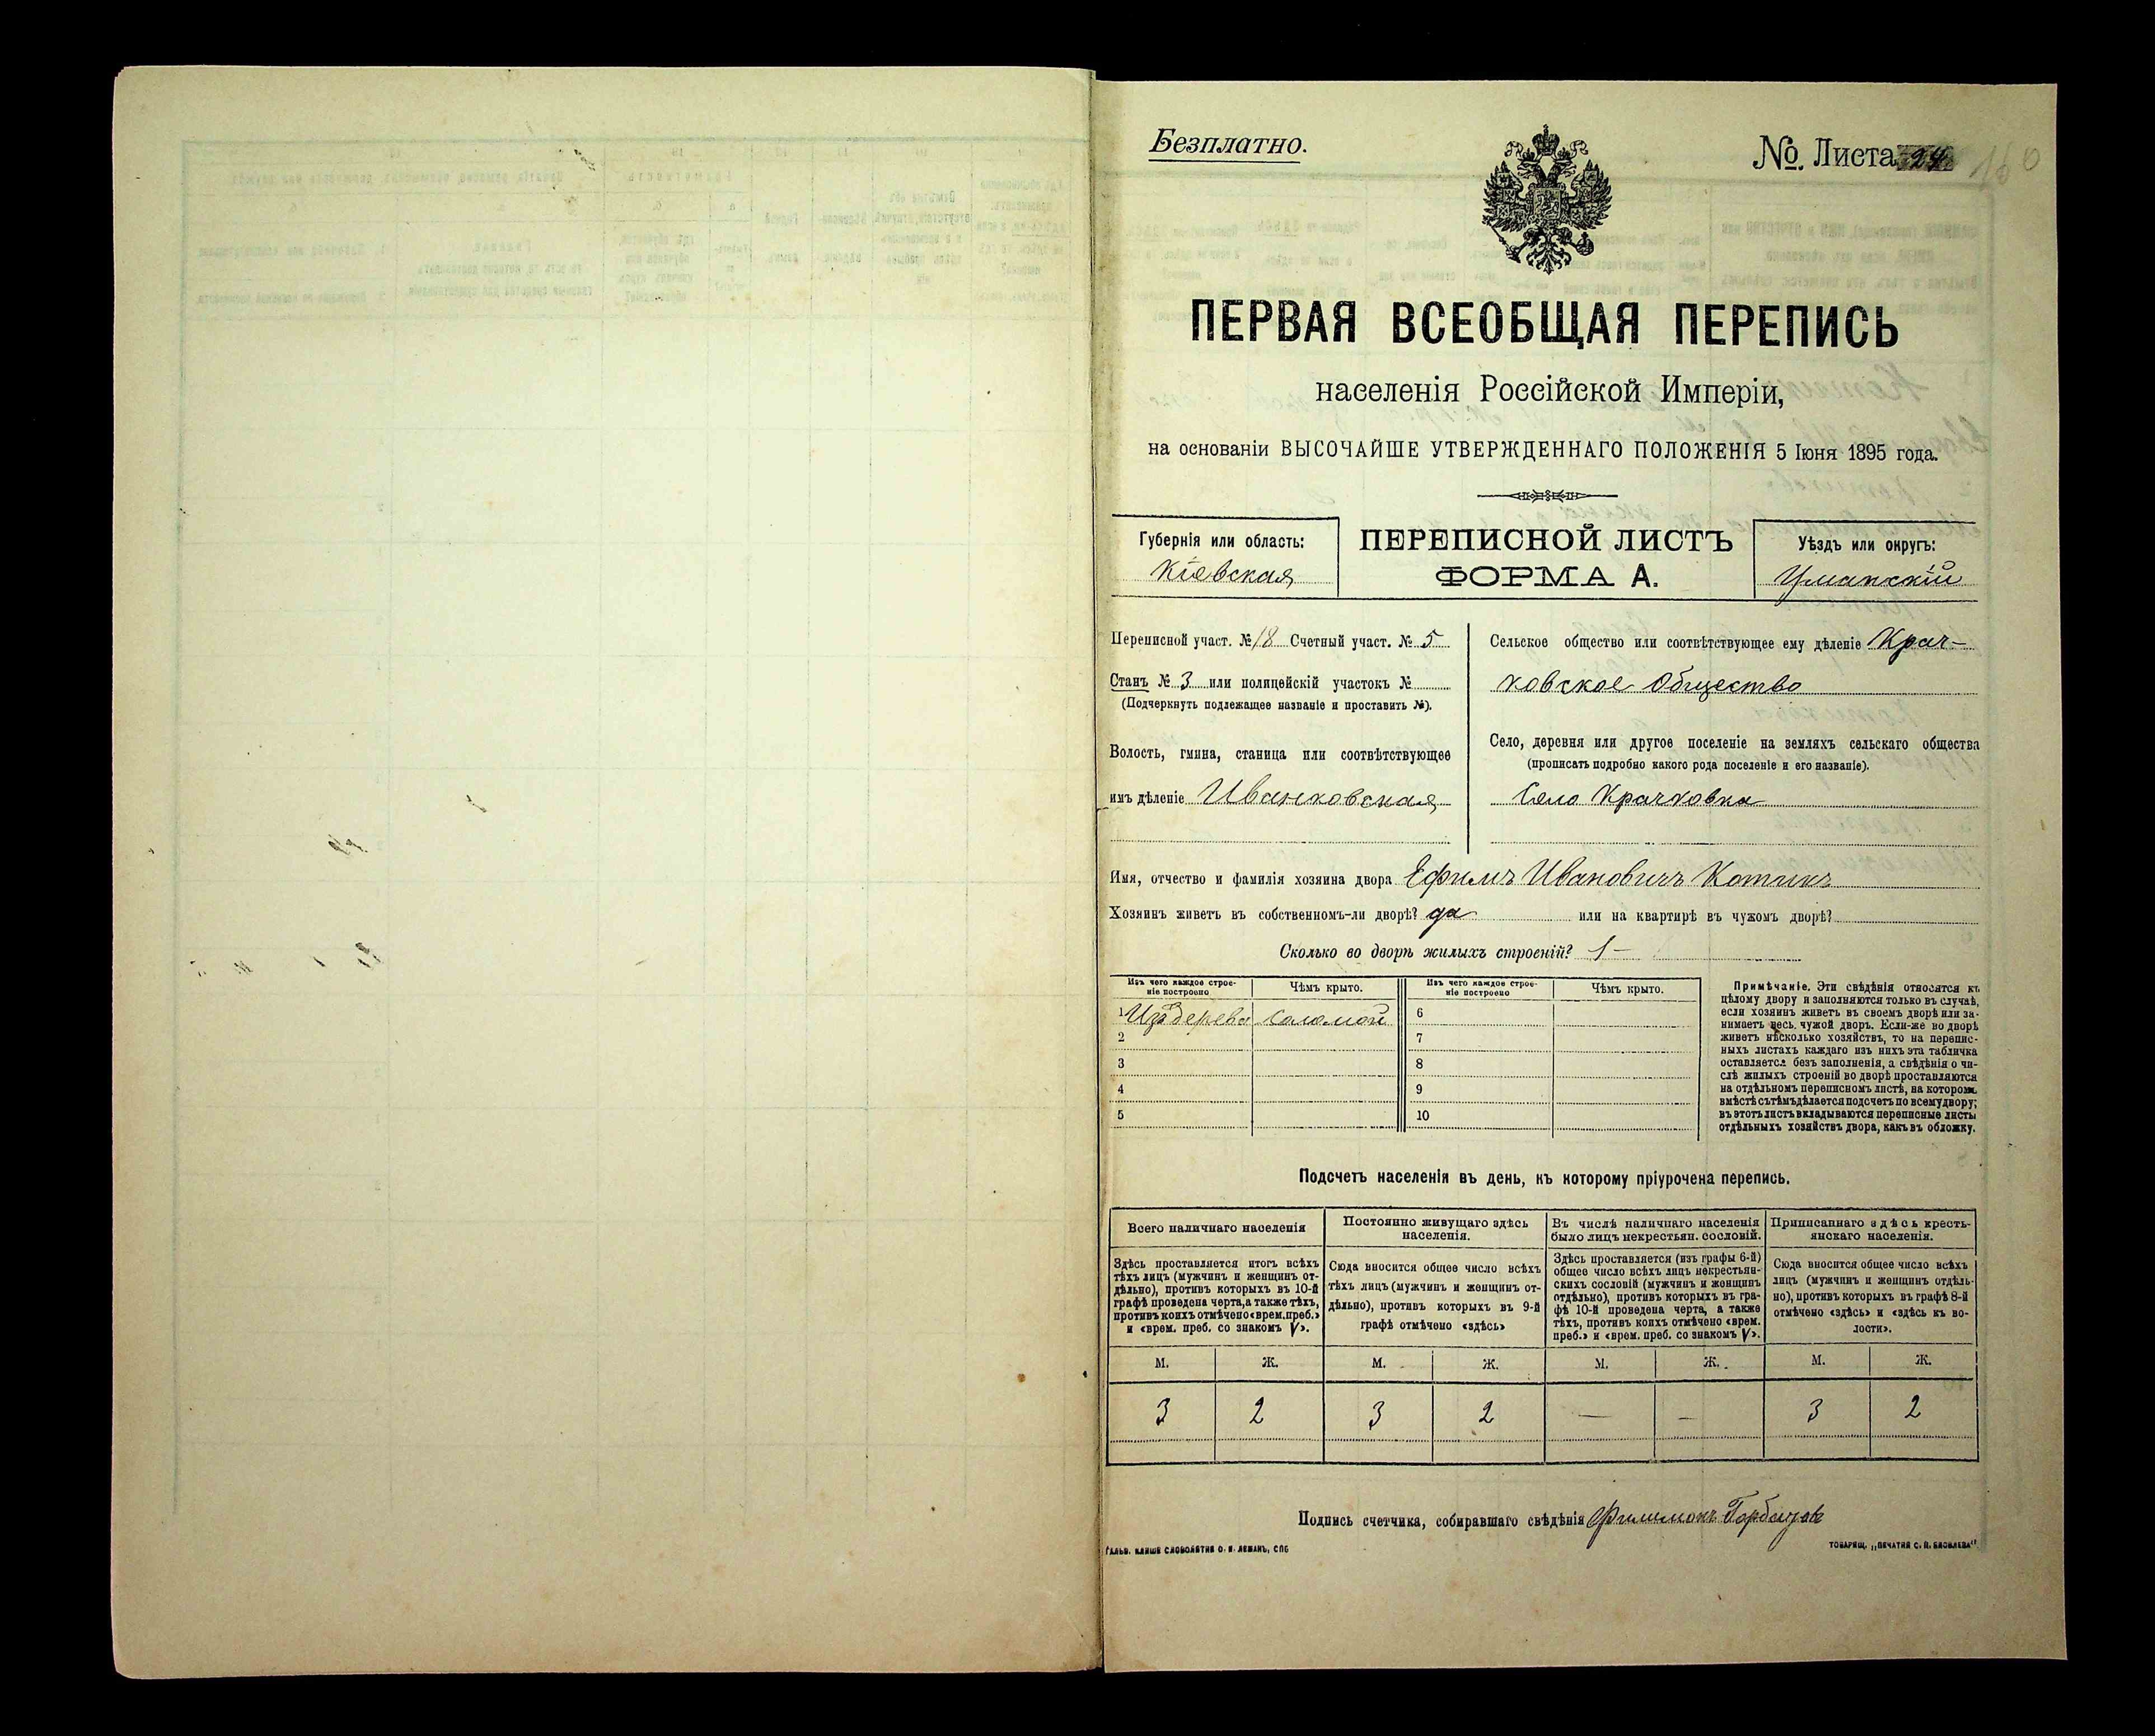 Безплатно.
№ Листа 24
ПЕРВАЯ ВСЕОБЩАЯ ПЕРЕПИСЬ
населенія Россійской Имперіи,
на основаніи ВЫСОЧАЙШЕ УТВЕРЖДЕННАГО ПОЛОЖЕНІЯ 5 Іюня 1895 года.
Губернія или область:
Кіевская
ПЕРЕПИСНОЙ ЛИСТЪ
ФОРМА А.
Уѣздъ или округъ:
Уманскій
Переписной участ. № 18 Счетный участ. № 5
Станъ № 3 или полицейскій участокъ №
(Подчеркнуть подлежащее названіе и проставить №).
Волость, гмина, станица или соотвѣтствующее
имъ дѣленіе Иваньковская
Сельское общество или соотвѣтствующее ему дѣленіе Крач-
ковское Общество
Село, деревня или другое поселеніе на земляхъ сельскаго общества
(прописать подробно какого рода поселеніе и его названіе).
Село Крачковка
Имя, отчество и фамилія хозяина двора Ефимъ Ивановичъ Котикъ
Хозяинъ живетъ въ собственномъ-ли дворѣ? да или на квартирѣ въ чужомъ дворѣ?
Сколько во дворѣ жилыхъ строеній? 1 —
Изъ чего каждое строе-
ніе построено
Чѣмъ крыто.
Изъ чего каждое строе-
ніе построено
Чѣмъ крыто.
1 Изъ дерева соломой 6
2 7
3 8
4 9
5 10
Примѣчаніе. Эти свѣдѣнія относятся къ
цѣлому двору и заполняются только въ случаѣ,
если хозяинъ живетъ въ своемъ дворѣ или за-
нимаетъ весь чужой дворъ. Если-же во дворѣ
живетъ нѣсколько хозяйствъ, то на перепис-
ныхъ листахъ каждаго изъ нихъ эта табличка
оставляется безъ заполненія, а свѣдѣнія о чи-
слѣ жилыхъ строеній во дворѣ проставляются
на отдѣльномъ переписномъ листѣ, на которомъ
вмѣстѣ съ тѣмъ дѣлается подсчетъ по всему двору;
въ этотъ листъ вкладываются переписные листы
отдѣльныхъ хозяйствъ двора, какъ въ обложку.
Подсчетъ населенія въ день, къ которому пріурочена перепись.
Всего наличнаго населенія
Здѣсь проставляется итогъ всѣхъ
тѣхъ лицъ (мужчинъ и женщинъ от-
дѣльно), противъ которыхъ въ 10-й
графѣ проведена черта, а также тѣхъ,
противъ коихъ отмѣчено «врем. преб.»
и «врем. преб. со знакомъ V».
Постоянно живущаго здѣсь
населенія.
Сюда вносится общее число всѣхъ
тѣхъ лицъ (мужчинъ и женщинъ от-
дѣльно), противъ которыхъ въ 9-й
графѣ отмѣчено «здѣсь»
Въ числѣ наличнаго населенія
было лицъ некрестьян. сословій.
Здѣсь проставляется (изъ графы 6-й)
общее число всѣхъ лицъ некрестьян-
скихъ сословій (мужчинъ и женщинъ
отдѣльно), противъ которыхъ въ гра-
фѣ 10-й проведена черта, а также
тѣхъ, противъ коихъ отмѣчено «врем.
преб.» и «врем. преб. со знакомъ V».
Приписаннаго здѣсь кресть-
янскаго населенія.
Сюда вносится общее число всѣхъ
лицъ (мужчинъ и женщинъ отдѣль-
но), противъ которыхъ въ графѣ 8-й
отмѣчено «здѣсь» и «здѣсь къ во-
лости».
М. Ж. М. Ж. М. Ж. М. Ж.
3 2 3 2 — — 3 2
Подпись счетчика, собиравшаго свѣдѣнія Филимонъ
ГАЛЬВ. КЛИШЕ СЛОВОЛИТНИ О. И. ЛЕМАНЪ, СПБ
ТОВАРИЩ. „ПЕЧАТНЯ С. П. ЯКОВЛЕВА“